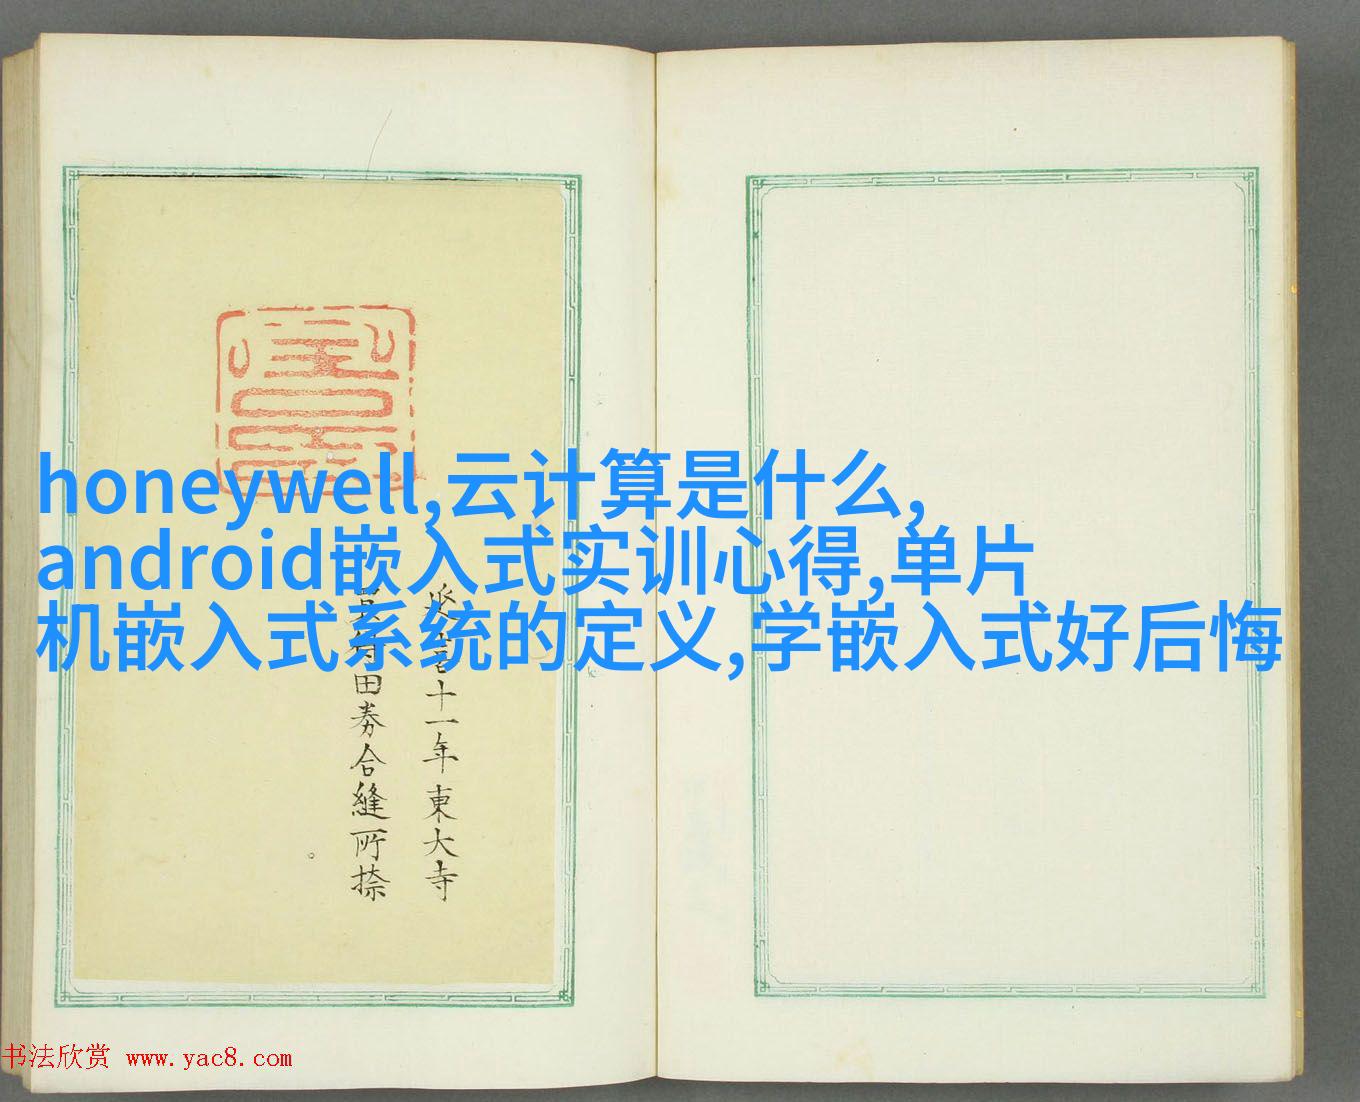 honeywell,云计算是什么,
android嵌入式实训心得,单片
机嵌入式系统的定义,学嵌入式好后悔
十一年東大寺
田券合縫所捺
书法欣赏 www.yac8.com